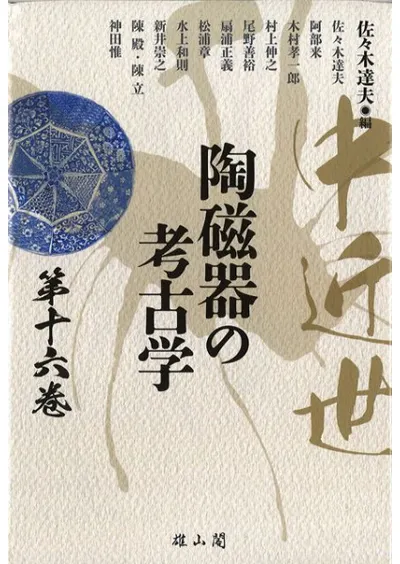 佐々木達夫●編
佐々木達夫
阿部来
木村孝一郎
村上伸之
尾野善裕
扇浦正義
松浦章
水上和則
新井崇之
陳殿・陳立
神田惟
中近世
陶磁器の
考古学
第十六巻
雄山閣